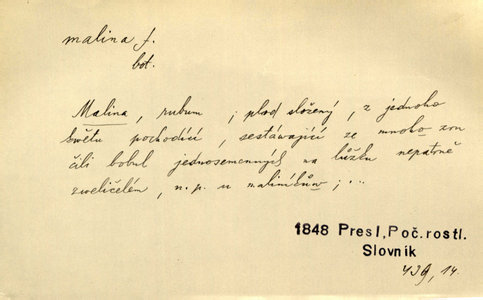 malina f.
bot.
Malina, rubum; plod složený, z jednoho
kwětu pochodící, sestáwající ze mnoho zrn
čili bobul jednosemenných na lůžku nepatrně
zweličelém, n. p. u maliníku; ...
1848 Presl, Poč. rostl.
Slovník
439, 14.